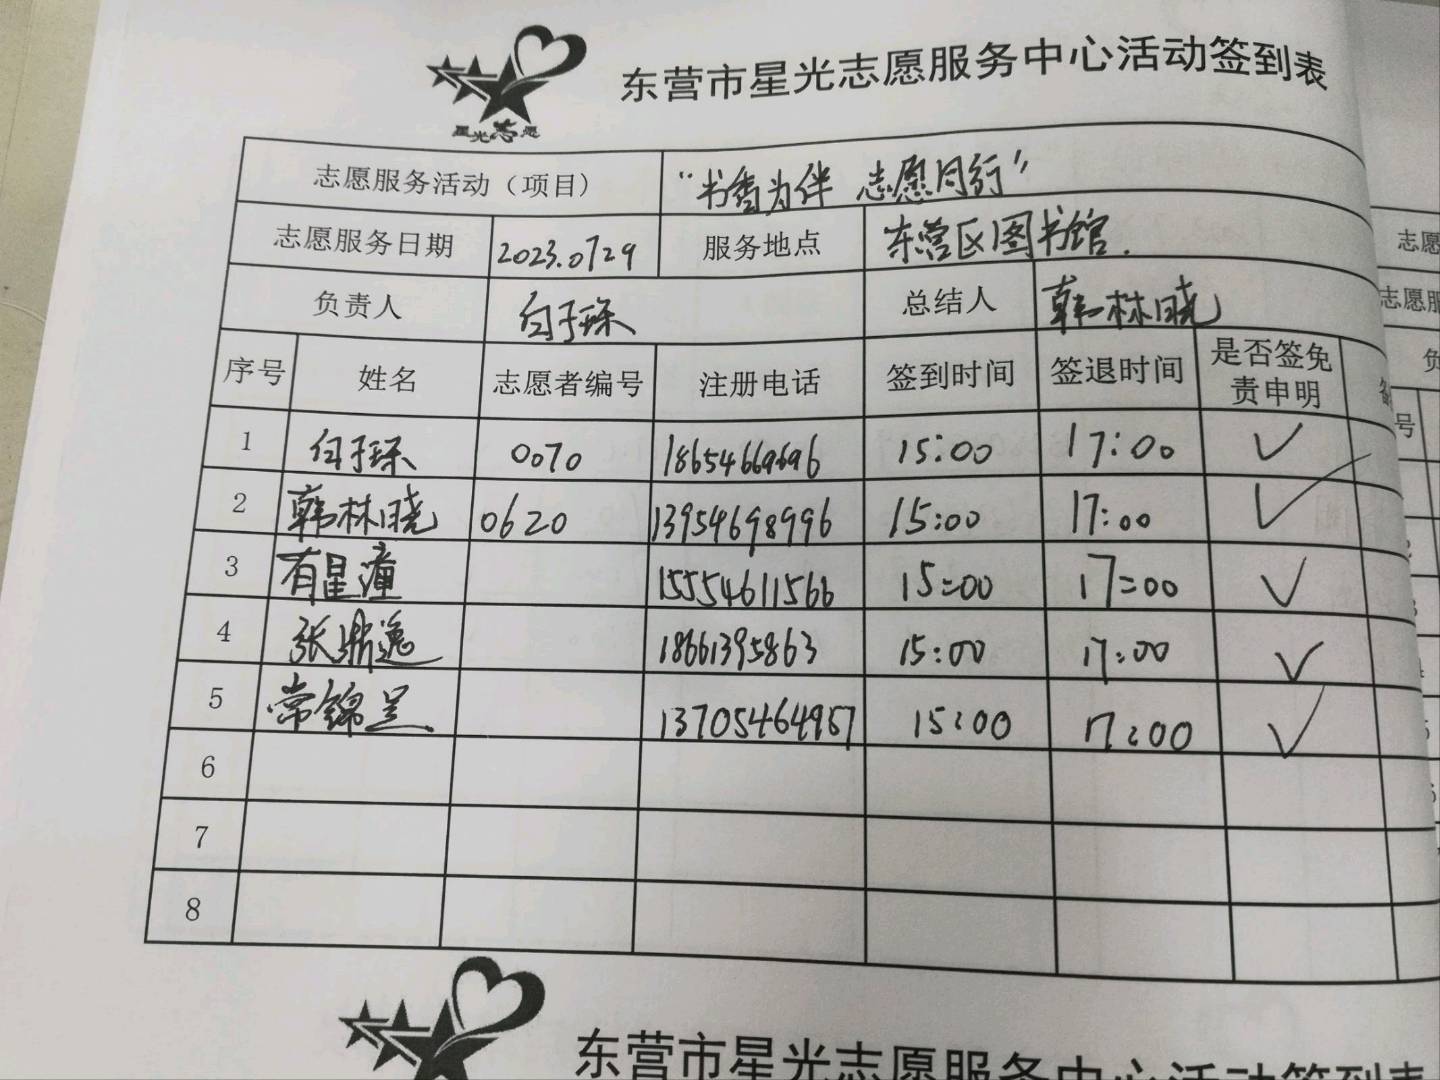 东营市星光志愿服务中心活动签到表
星光志愿
志愿服务活动（项目） “书香为伴 志愿同行”
志愿服务日期 2023.0729 服务地点 东营区图书馆.
负责人 白子琛 总结人 韩林晓
序号 姓名 志愿者编号 注册电话 签到时间 签退时间 是否签免责申明
1 白子琛 0070 18654669696 15:00 17:00 ✓
2 韩林晓 0620 13954698996 15:00 17:00 ✓
3 有星潼 15554611566 15:00 17:00 ✓
4 张鼎逸 18661395863 15:00 17:00 ✓
5 常锦呈 13705464957 15:00 17:00 ✓
6
7
8
东营市星光志愿服务中心活动签到表
志愿
志愿服
负
号